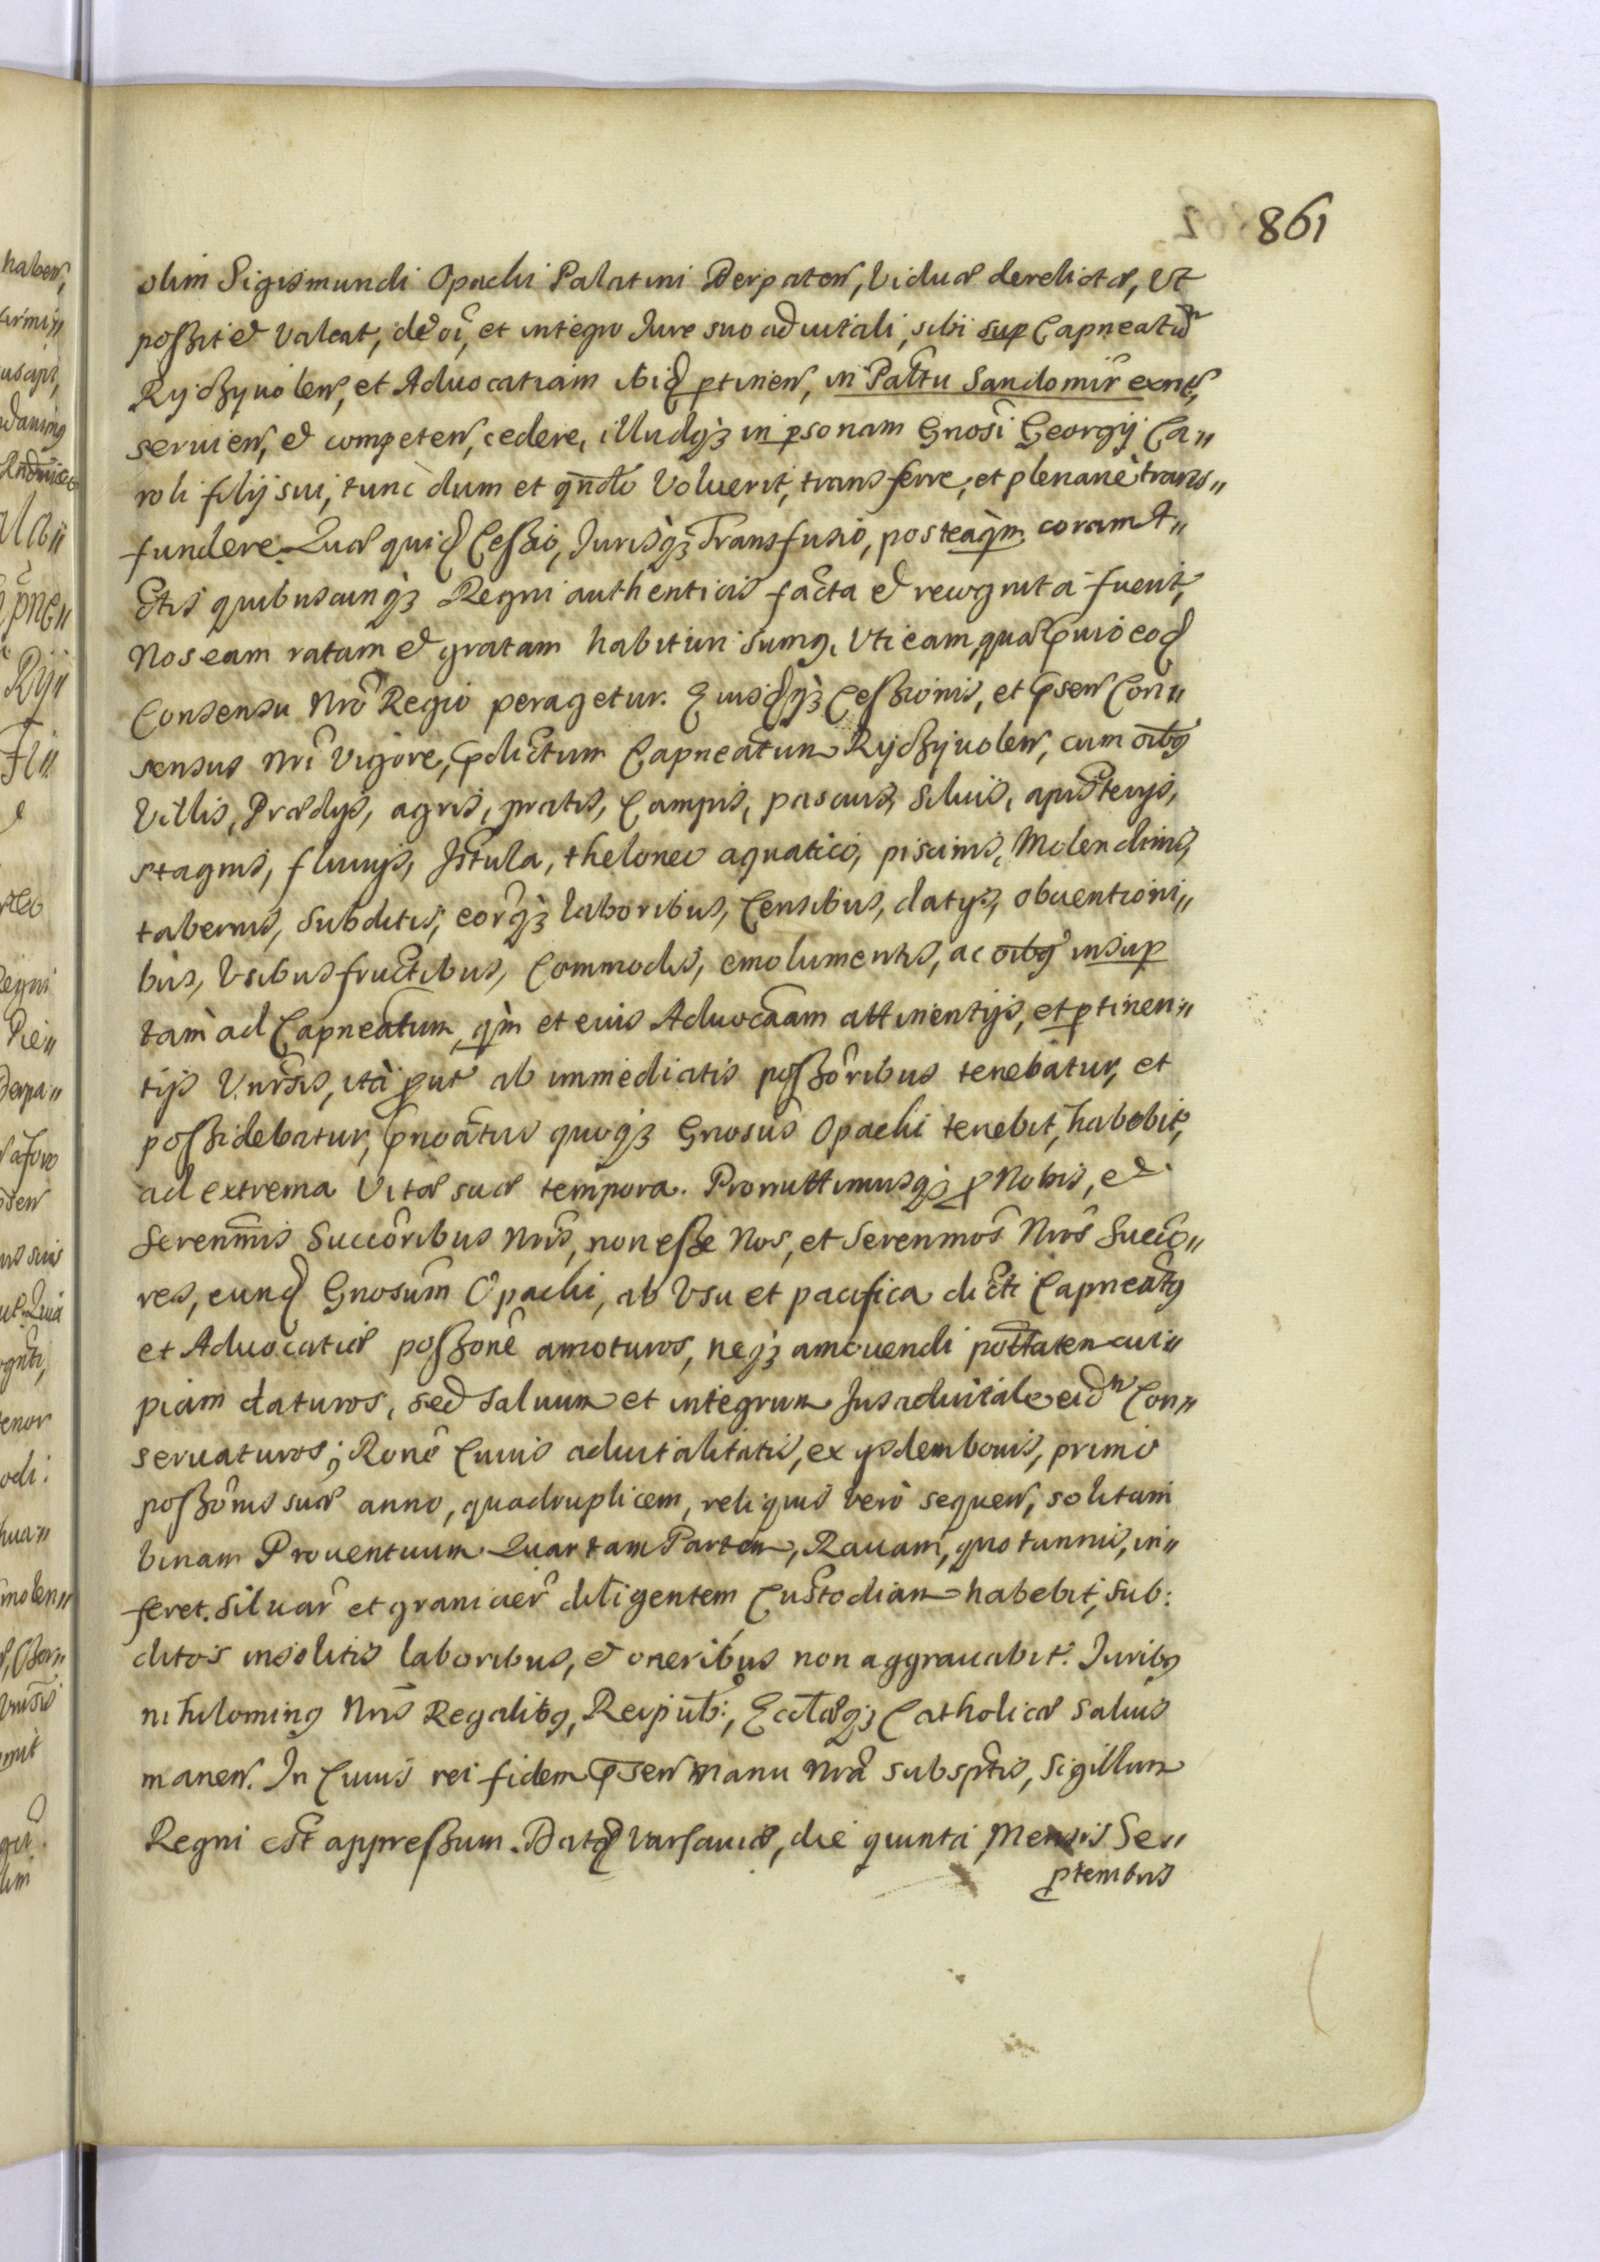 861
olim Sigismundi Opacki Palatini Derpaten, Viduæ derelictæ, Vt
possit et valeat, de oi, et integro Iure suo aduitali, sibi sup Capneatu
Ryczyuolen, et Aduocatiam ibid ptinen, in Pałtu Sandomir exnt,
seruien, et competen, cedere, illudq3 in psonam Gnosi Georgij Ca〃
roli filij sui, tunc dum et qndo Voluerit, transferre, et plenariè trans〃
fundere. Quæ quid Cessio, Iurisq3 Transfusio, posteaqm coram A〃
ctis quibuscunq3 Regni authenticis facta et recognita fuerit,
Nos eam ratam et gratam habituri sumq, Vti eam, quæ puio eod
Consensu Nro Regio peragetur. Eiusdq3 Cessionis, et psen Con〃
sensus Nri Vigore, pdictum Capneatum Ryczyuolen, cum oibq
Villis, Prædijs, agris, pratis, Campis, pascuis, siluis, apisterijs,
stagnis, fluuijs, Istula, theloneo aquatico, piscinis, Molendinis,
tabernis, subditis, eorq3 laboribus, Censibus, datijs, obuentioni〃
bus, Vsibusfructibus, Commodis, emolumentis, ac oibq insup
tam ad Capneatum, qm et eius Aduocaam attinentijs, et ptinen〃
tijs Vnrsis, ità put ab immediatis possoribus tenebatur, et
possidebatur, pnoatus quoq3 Gnosus Opacki tenebit, habebit,
ad extrema Vitæ suæ tempora. Promittimusq3 p Nobis, et
Serenmis Succoribus Nris, non esse Nos, et Serenmos Nros Succo〃
res, eund Gnosum Opacki, ab Vsu et pacifica dicti Capneatq
et Aduocatiæ possone amoturos, neq3 amouendi pottatem cui〃
piam daturos, sed saluum et integrum Ius aduitale eid Con〃
seruaturos; Rone Cuius aduitalitatis, ex ijsdem bonis, primo
possonis suæ anno, quadruplicem, reliquis verò sequen, solitam
binam Prouentuum Quartam Partem, Rauam, quotannis, in〃
feret. Siluar et granicier diligentem Custodiam habebit, sub:
ditos insolitis laboribus, et oneribus non aggrauabit. Iuribq
nihilominq Nris Regalibq, Reipub:, Ecclæq3 Catholicæ saluis
manen. In Cuius rei fidem psen manu Nra subsptis, Sigillum
Regni est appressum. Datq Varsauiæ, die quinta Mensis Se〃
ptembris